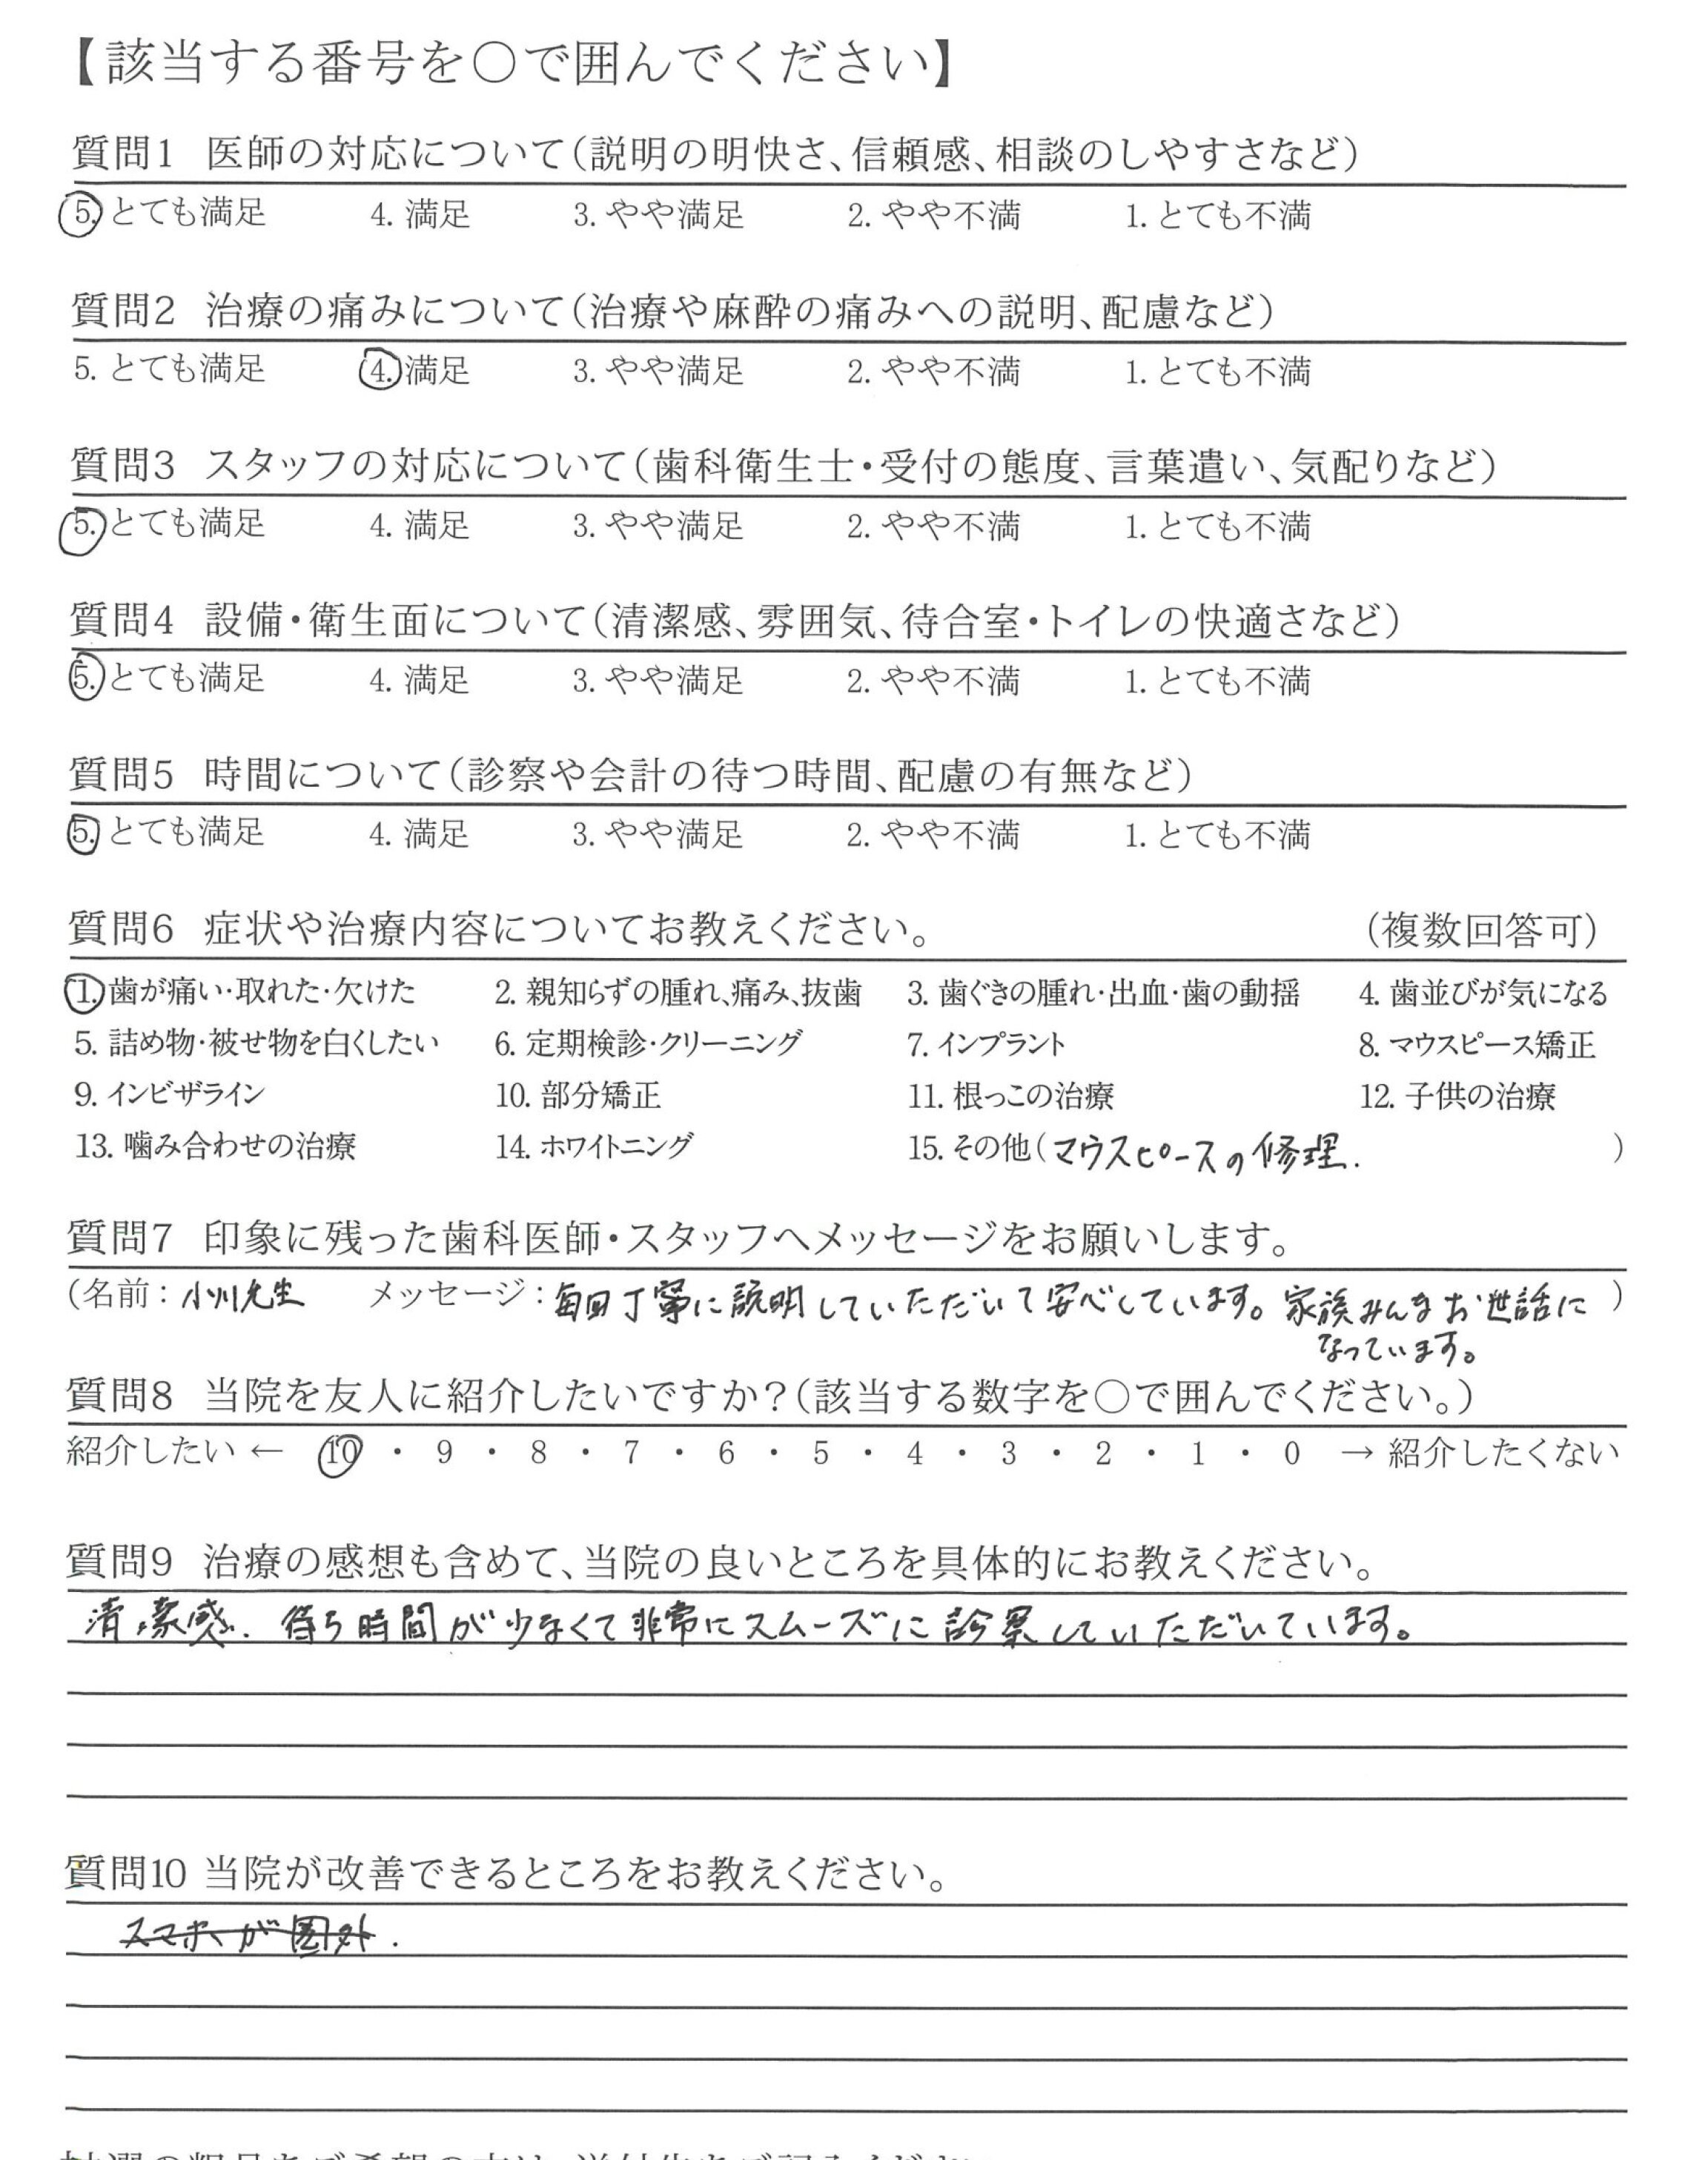 【該当する番号を○で囲んでください】
質問1 医師の対応について(説明の明快さ、信頼感、相談のしやすさなど)
5. とても満足 4. 満足 3. やや満足 2. やや不満 1. とても不満
質問2 治療の痛みについて(治療や麻酔の痛みへの説明、配慮など)
5. とても満足 4. 満足 3. やや満足 2. やや不満 1. とても不満
質問3 スタッフの対応について(歯科衛生士・受付の態度、言葉遣い、気配りなど)
5. とても満足 4. 満足 3. やや満足 2. やや不満 1. とても不満
質問4 設備・衛生面について(清潔感、雰囲気、待合室・トイレの快適さなど)
5. とても満足 4. 満足 3. やや満足 2. やや不満 1. とても不満
質問5 時間について(診察や会計の待つ時間、配慮の有無など)
5. とても満足 4. 満足 3. やや満足 2. やや不満 1. とても不満
質問6 症状や治療内容についてお教えください。 (複数回答可)
1. 歯が痛い・取れた・欠けた 2. 親知らずの腫れ、痛み、抜歯 3. 歯ぐきの腫れ・出血・歯の動揺 4. 歯並びが気になる
5. 詰め物・被せ物を白くしたい 6. 定期検診・クリーニング 7. インプラント 8. マウスピース矯正
9. インビザライン 10. 部分矯正 11. 根っこの治療 12. 子供の治療
13. 噛み合わせの治療 14. ホワイトニング 15. その他(マウスピースの修理. )
質問7 印象に残った歯科医師・スタッフへメッセージをお願いします。
(名前：小川先生 メッセージ：毎回丁寧に説明していただいて安心しています。家族みんなお世話に )
なっています。
質問8 当院を友人に紹介したいですか？(該当する数字を○で囲んでください。)
紹介したい ← 10 ・ 9 ・ 8 ・ 7 ・ 6 ・ 5 ・ 4 ・ 3 ・ 2 ・ 1 ・ 0 → 紹介したくない
質問9 治療の感想も含めて、当院の良いところを具体的にお教えください。
清潔感. 待ち時間が少なくて非常にスムーズに診察していただいています。
質問10 当院が改善できるところをお教えください。
スマホが圏外.